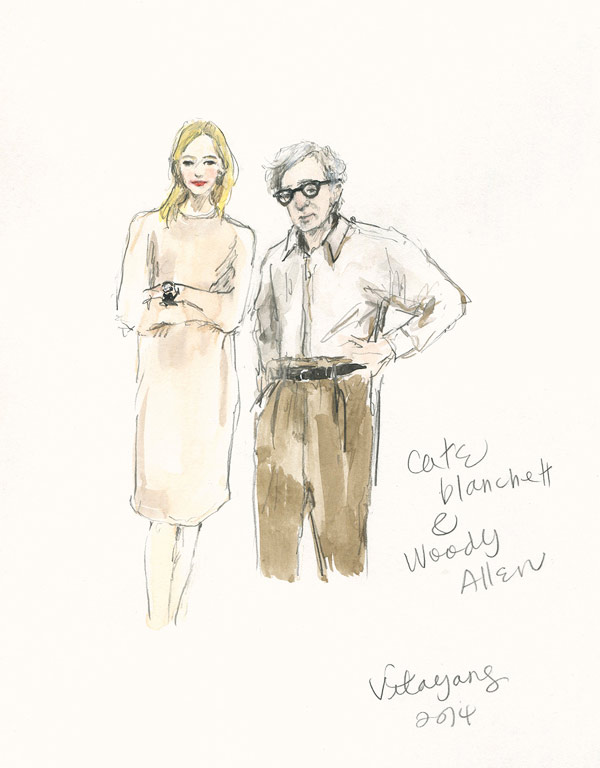 Cate
blanchett
&
Woody
Allen
Vitayang
2014